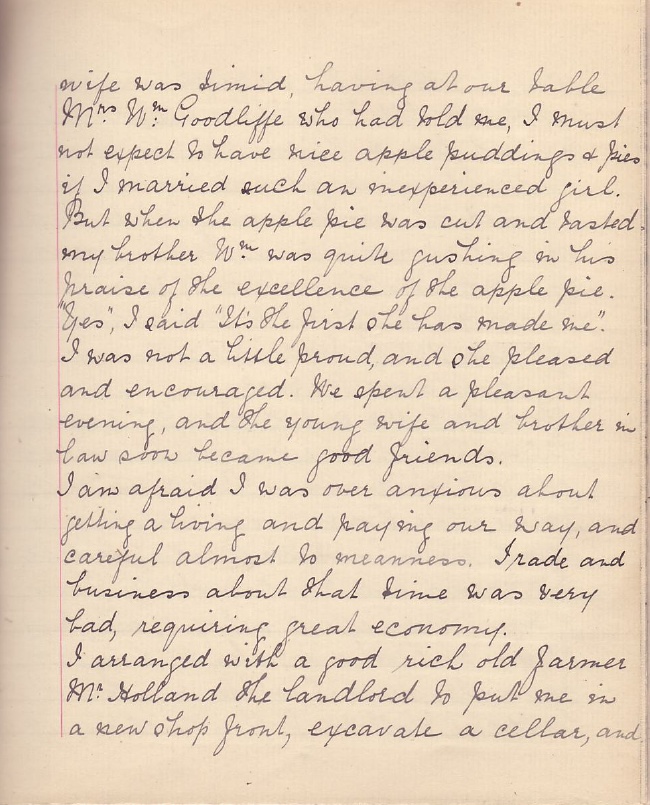 wife was timid, having at our table
Mrs Wm. Goodliffe who had told me, I must
not expect to have nice apple puddings & pies
if I married such an inexperienced girl.
But when the apple pie was cut and tasted.
my brother Wm was quite gushing in his
praise of the excellence of the apple pie.
"Yes", I said "It's the first she has made me".
I was not a little proud, and she pleased
and encouraged. We spent a pleasant
evening, and the young wife and brother in
law soon became good friends.
I am afraid I was over anxious about
getting a living and paying our way, and
careful almost to meanness. Trade and
business about that time was very
bad, requiring great economy.
I arranged with a good rich old farmer
Mr. Holland the landlord to put me in
a new shop front, excavate a cellar, and